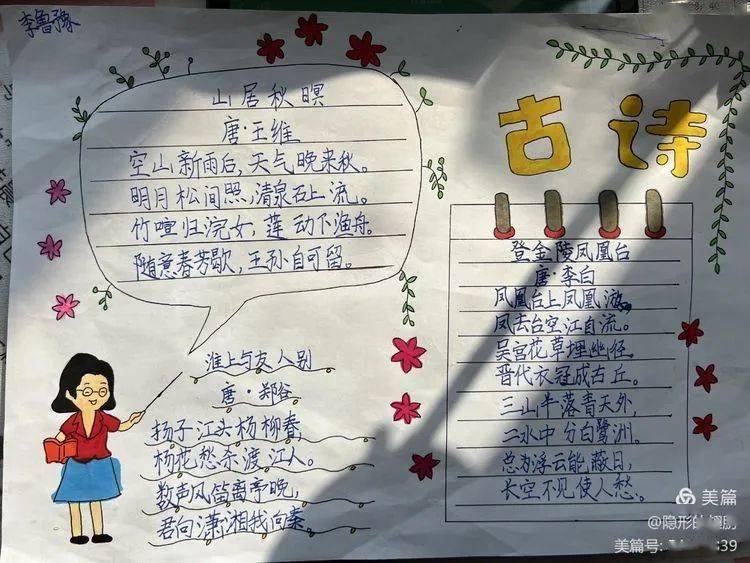 李鲁豫
山居秋暝
唐·王维
空山新雨后,天气晚来秋。
明月松间照,清泉石上流。
竹喧归浣女,莲动下渔舟。
随意春芳歇,王孙自可留。
淮上与友人别
唐·郑谷
扬子江头杨柳春,
杨花愁杀渡江人。
数声风笛离亭晚,
君向潇湘我向秦。
古诗
登金陵凤凰台
唐·李白
凤凰台上凤凰游,
凤去台空江自流。
吴宫花草埋幽径,
晋代衣冠成古丘。
三山半落青天外,
二水中分白鹭洲。
总为浮云能蔽日,
长空不见使人愁。
美篇
@隐形的翅膀
美篇号: 39